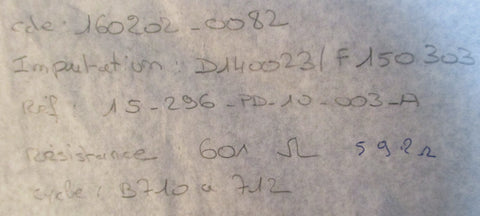 cde : 160202_0082
Imputation : D140023/F150303
Réf : 15-296-PD-10-003-A
Résistance 601 Ω 592Ω
cycle : B710 a 712